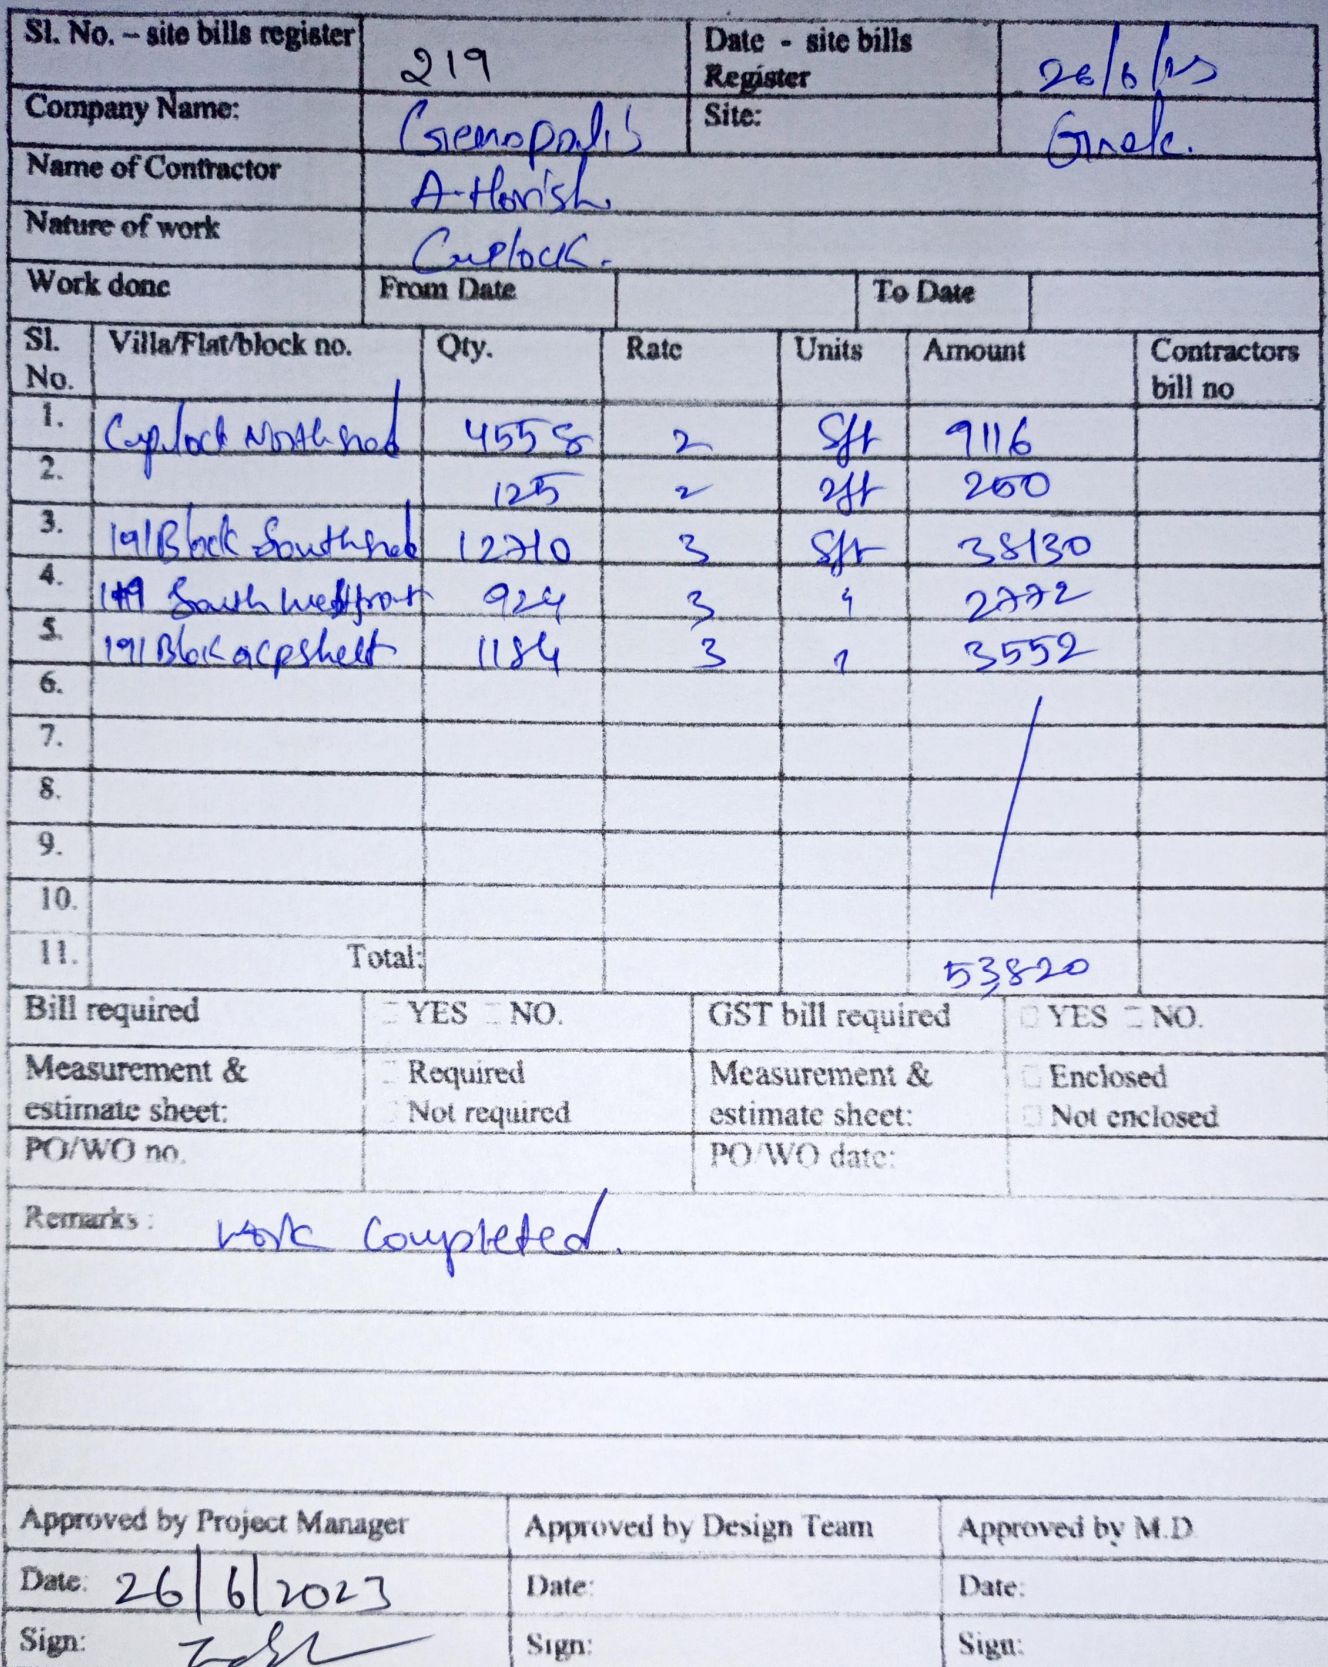 Sl. No. – site bills register 219 Date - site bills Register 26/6/23
Company Name: Genopolis Site: 
Name of Contractor A-Harish.
Nature of work Cuplock.
Work done From Date To Date
Sl. No. Villa/Flat/block no. Qty. Rate Units Amount Contractors bill no
1. Cuplock North 4558 2 Sft 9116
2. 125 2 sft 250
3. 191 Block South 12710 3 Sft 38130
4. South west front 924 3 " 2772
5. 191 Block acp 1184 3 " 3552
6.
7.
8.
9.
10.
11. Total: 53,820
Bill required YES NO. GST bill required YES NO.
Measurement & estimate sheet: Required Not required Measurement & estimate sheet: Enclosed Not enclosed
PO/WO no. PO/WO date:
Remarks : work completed.
Approved by Project Manager Approved by Design Team Approved by M.D
Date: 26/6/2023 Date: Date:
Sign: Sign: Sign: